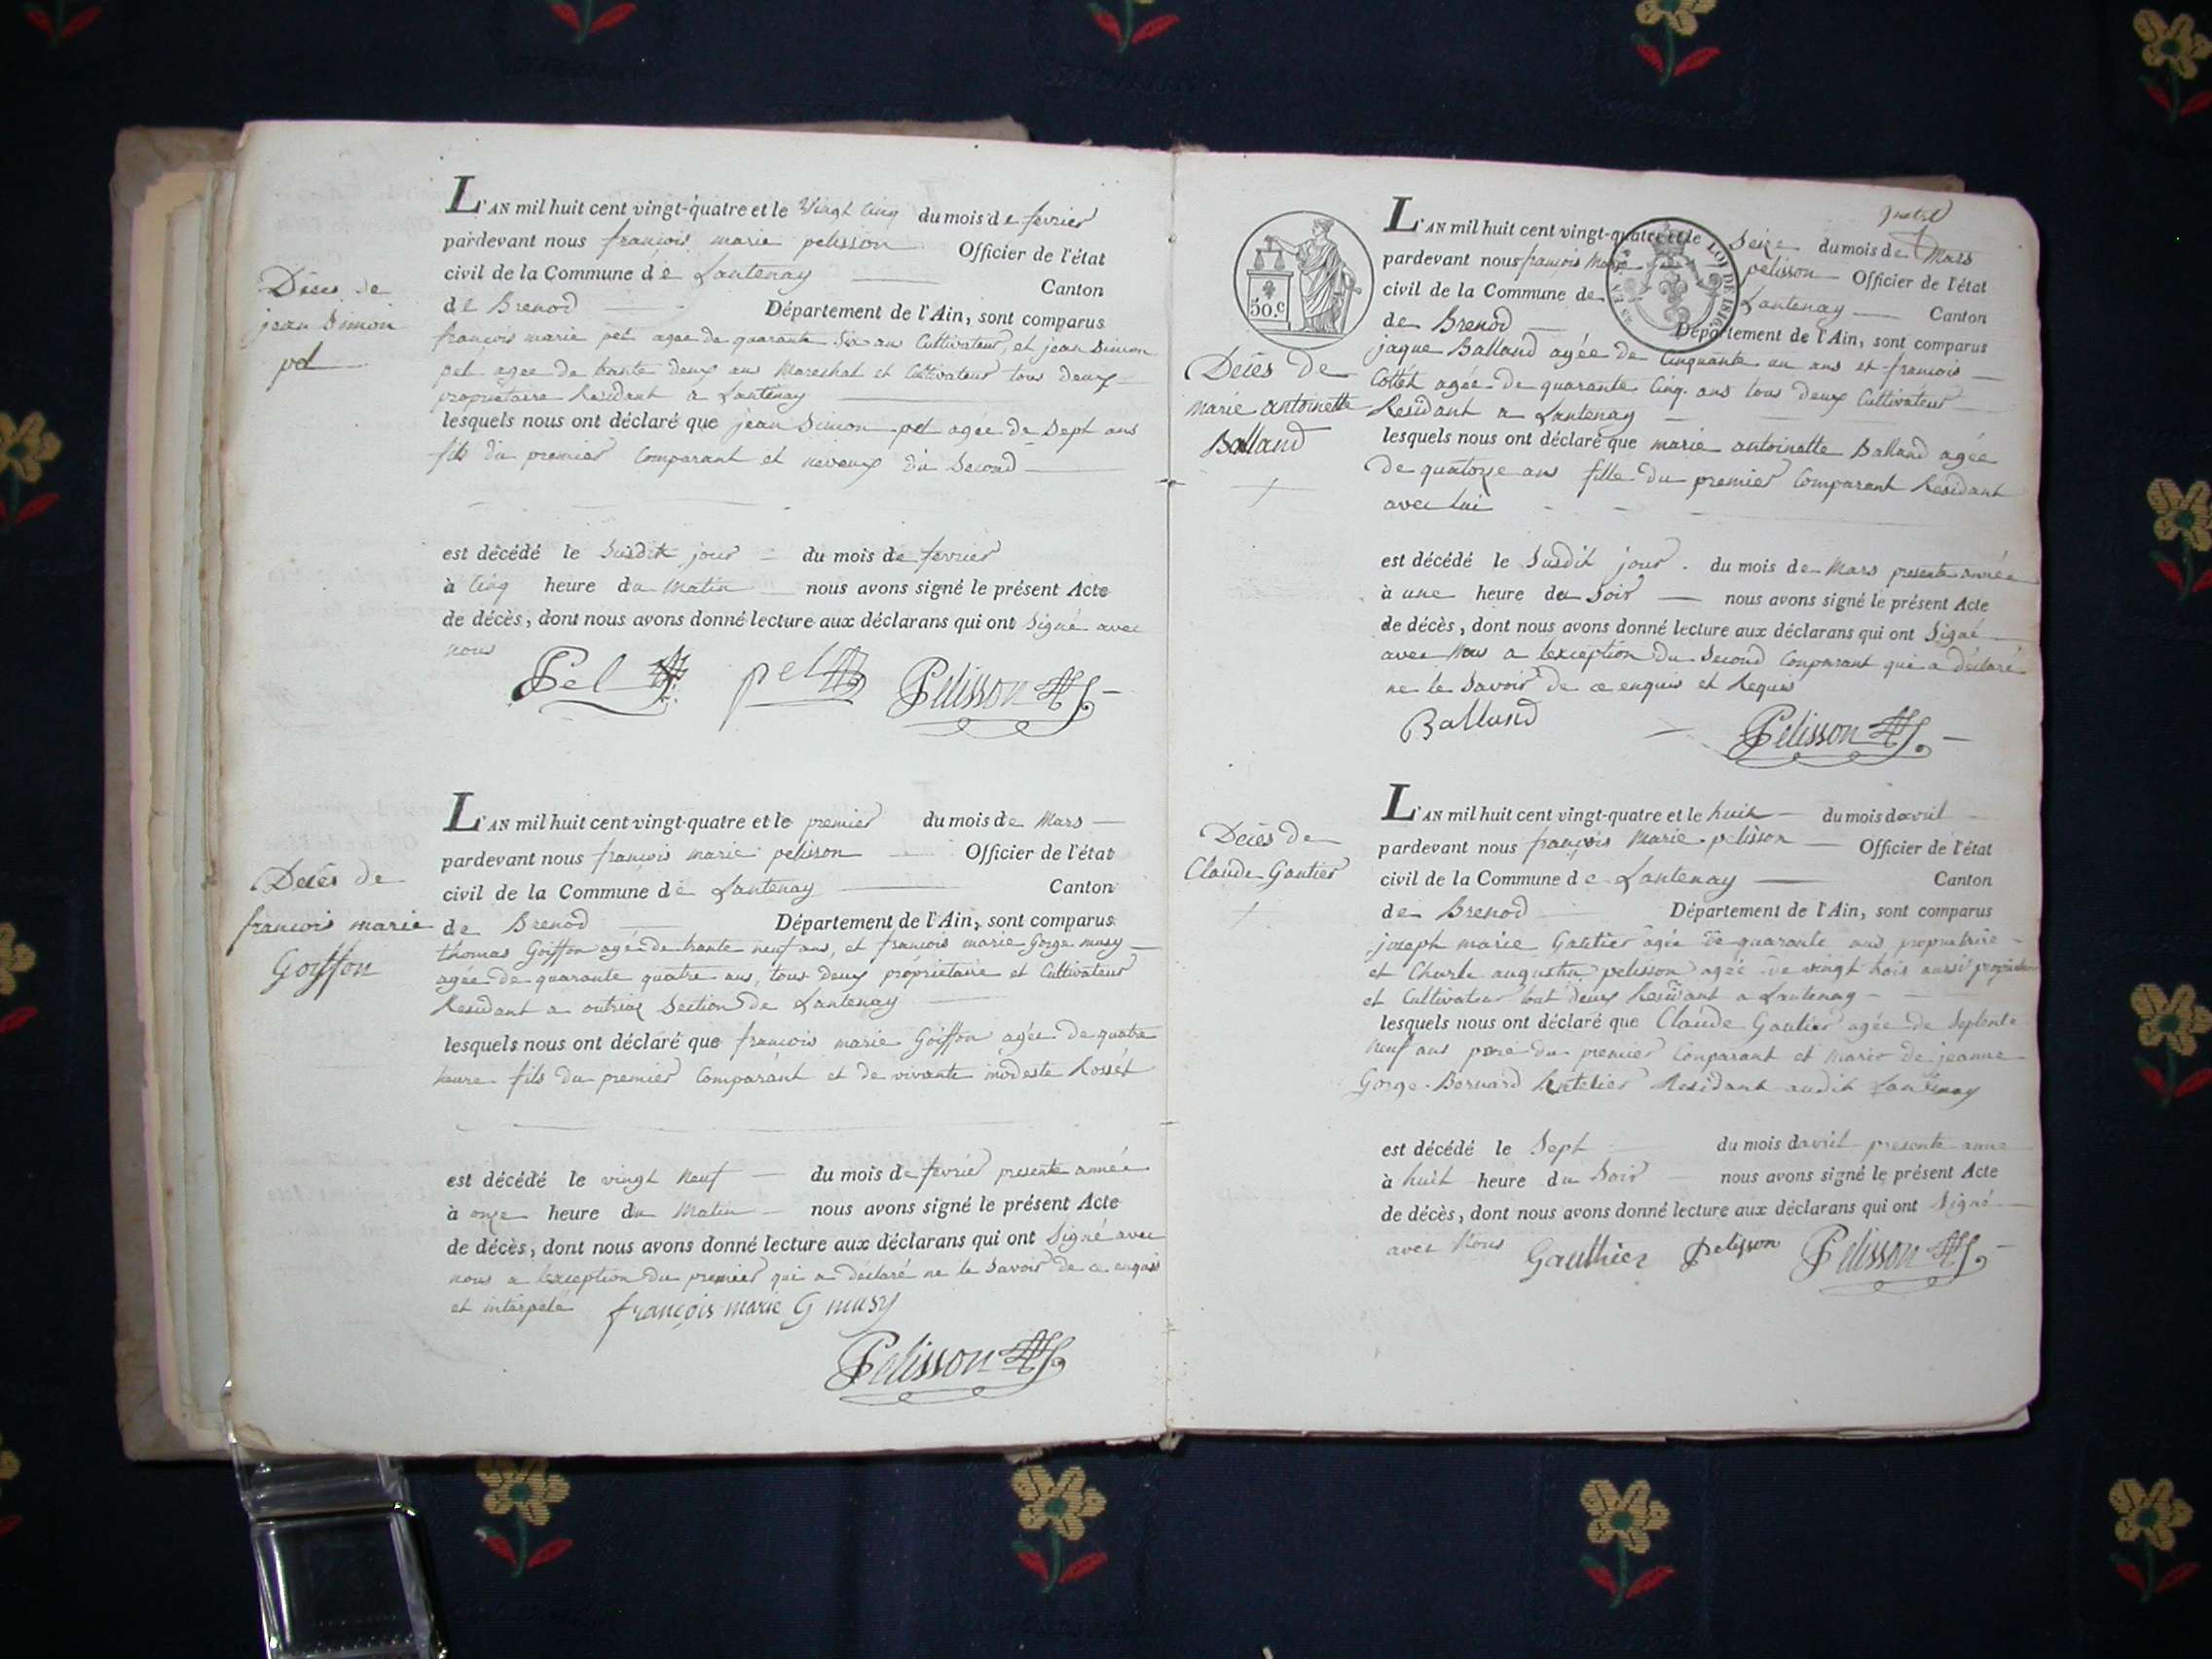 L'AN mil huit cent vingt-quatre et le Vingt Cinq du mois de fevrier
pardevant nous françois marie pelisson Officier de l'état
civil de la Commune de Lantenay Canton
de Brenod Département de l'Ain, sont comparus
françois marie pet agee de quarante Six ans Cultivateur, et jean Simon
pet agee de trante deux ans Mareshal et Cultivateur tous deux
propriétaire Residant a Lantenay
Décès de
jean Simon
pet
lesquels nous ont déclaré que jean Simon pet agée de Sept ans
fils du premier Comparant et neveux du Second
est décédé le Susdit jour du mois de fevrier
à Cinq heure du Matin nous avons signé le présent Acte
de décès, dont nous avons donné lecture aux déclarans qui ont Signé avec
nous
Pet pet Pelisson
L'AN mil huit cent vingt-quatre et le premier du mois de Mars
pardevant nous françois marie pelisson Officier de l'état
civil de la Commune de Lantenay Canton
de Brenod Département de l'Ain, sont comparus
Décès de
françois marie
Goiffon
thomas Goiffon agé de trante neuf ans, et françois marie Gorge musy
agée de quarante quatre ans, tous deux propriétaire et Cultivateur
Residant a outriaz Section de Lantenay
lesquels nous ont déclaré que françois marie Goiffon agée de quatre
heure fils du premier Comparant et de vivante modeste Rosset
est décédé le vingt neuf du mois de fevrier presente année
à onze heure du Matin nous avons signé le présent Acte
de décès, dont nous avons donné lecture aux déclarans qui ont Signé avec
nous a lexception du premier qui a déclaré ne le Savoir de ce enquis
et interpelé françois marie G musy
Pelisson
50.c
LOI DE 1816.
L'AN mil huit cent vingt-quatre et le Seize du mois de Mars
pardevant nous françois Marie pelisson Officier de l'état
civil de la Commune de Lantenay Canton
de Brenod Département de l'Ain, sont comparus
jaque Balland agée de Cinquante un ans et françois
Cottet agée de quarante Cinq ans tous deux Cultivateur
Residant a Lantenay
Décès de
marie antoinette
Balland
lesquels nous ont déclaré que marie antoinette Balland agée
de quatorze ans fille du premier Comparant Residant
avec lui
est décédé le Susdit jour du mois de Mars presente année
à une heure du Soir nous avons signé le présent Acte
de décès, dont nous avons donné lecture aux déclarans qui ont Signé
avec Nous a lexception du Second Comparant qui a déclaré
ne le Savoir de ce enquis et Requis
Balland Pelisson
L'AN mil huit cent vingt-quatre et le huit du mois davril
pardevant nous françois Marie pelisson Officier de l'état
civil de la Commune de Lantenay Canton
de Brenod Département de l'Ain, sont comparus
Décès de
Claude Gautier
jozeph marie Gautier agée de quarante ans propriétaire
et Charle augustin pelisson agée de vingt trois aussi propriétaire
et Cultivateur tout deux Residant a Lantenay
lesquels nous ont déclaré que Claude Gautier agée de Septente
neuf ans pere du premier Comparant et marie de jeanne
Gorge Bernard Residant audit Lantenay
est décédé le Sept du mois davril presente anne
à huit heure du Soir nous avons signé le présent Acte
de décès, dont nous avons donné lecture aux déclarans qui ont Signé
avec Nous Gauthier Pelisson Pelisson